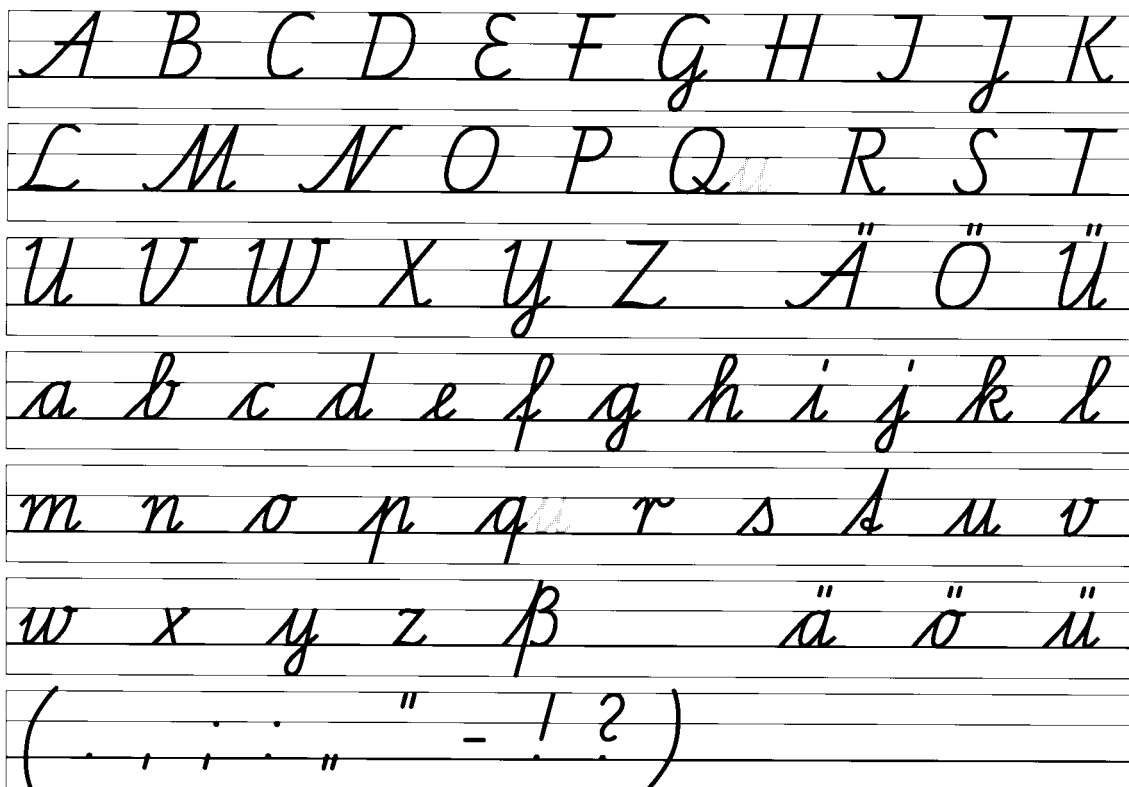 A B C D E F G H I J K
L M N O P Qu R S T
U V W X Y Z Ä Ö Ü
a b c d e f g h i j k l
m n o p qu r s t u v
w x y z ß ä ö ü
( . , ; : „ “ - ! ? )